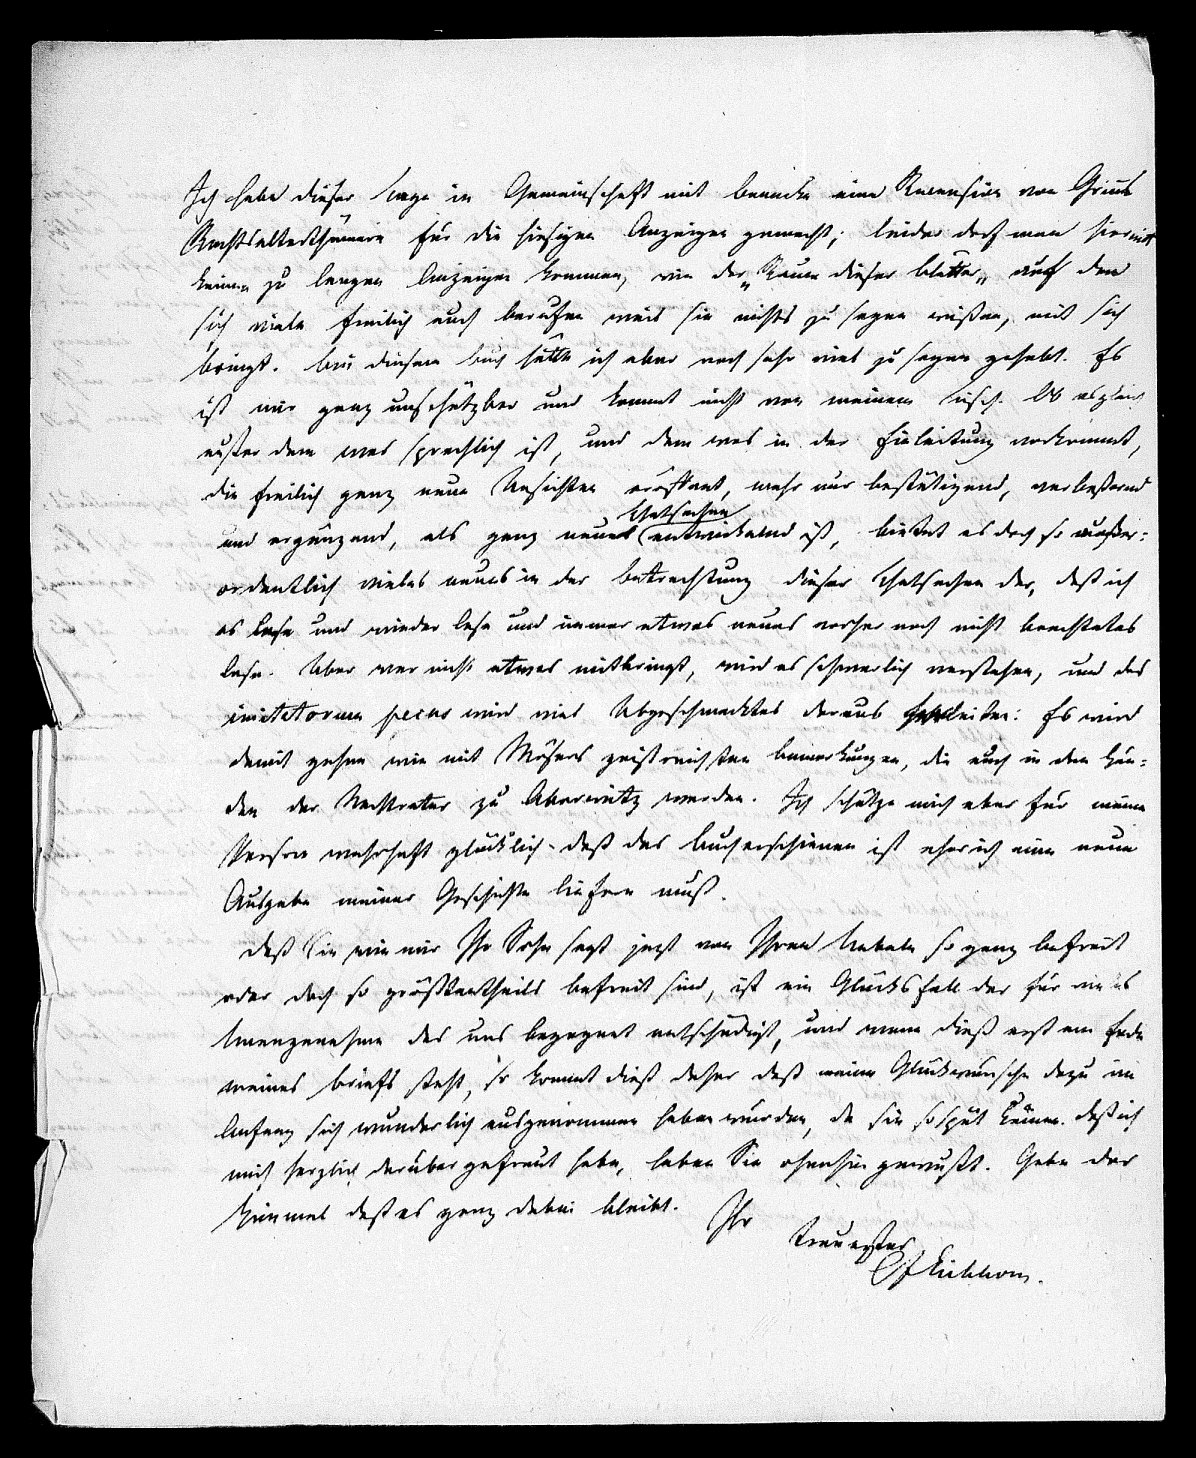 Ich habe dieser Tage in Gemeinschaft mit Benecke eine Recension von Grimms
Rechtsalterthümern für die hiesigen Anzeigen gemacht; leider darf man hier mit
keinen zu langen Anzeigen kommen, wie der „Raum dieser Blätter„ auf den
sich viele freilich auch berufen weil sie nichts zu sagen wißen, mit sich
bringt. Bei diesem Buch hätte ich aber noch sehr viel zu sagen gehabt. Es
ist mir ganz unschätzbar und kommt nicht von meinem Tisch. Ob es gleich
außer dem was sprachlich ist, und dem was in der Einleitung vorkommt,
die freilich ganz neue Ansichten eröffnet, mehr nur bestätigend, verbeßernd
und ergänzend, als ganz neue Thatsachen entwickelnd ist, bietet es doch so außer-
ordentlich vieles neues in der Betrachtung dieser Thatsachen dar, daß ich
es lese und wieder lese und immer etwas neues vorher noch nicht beachtetes
lese. Aber wer nicht etwas mitbringt, wird es schwerlich verstehen, und das
imitatorum pecus wird viel Abgeschmacktes daraus herleiten: Es wird
damit gehen wie mit Mösers geistreichsten Bemerkungen, die auch in den Hän-
den der Nachtreter zu Aberwitz werden. Ich schätze mich aber für meine
Person wahrhaft glücklich, daß das Buch erschienen ist ehe ich eine neue
Ausgabe meiner Geschichte liefern muß.
Daß Sie wie mir Ihr Sohn sagt jezt von Ihren Uebeln so ganz befreit
oder doch so größtentheils befreit sind, ist ein Glücksfall der für vieles
Unangenehme das uns begegnet entschädigt, und wenn dieß erst am Ende
meines Briefs steht, so kommt dieß daher daß meine Glückwünsche dazu im
Anfang sich wunderlich ausgenommen haben würden, da sie so spät kämen. Daß ich
mich herzlich darüber gefreut habe, haben Sie ohnehin gewußt. Gebe der
Himmel daß es ganz dabei bleibt.
Ihr
treuester
CFEichhorn.